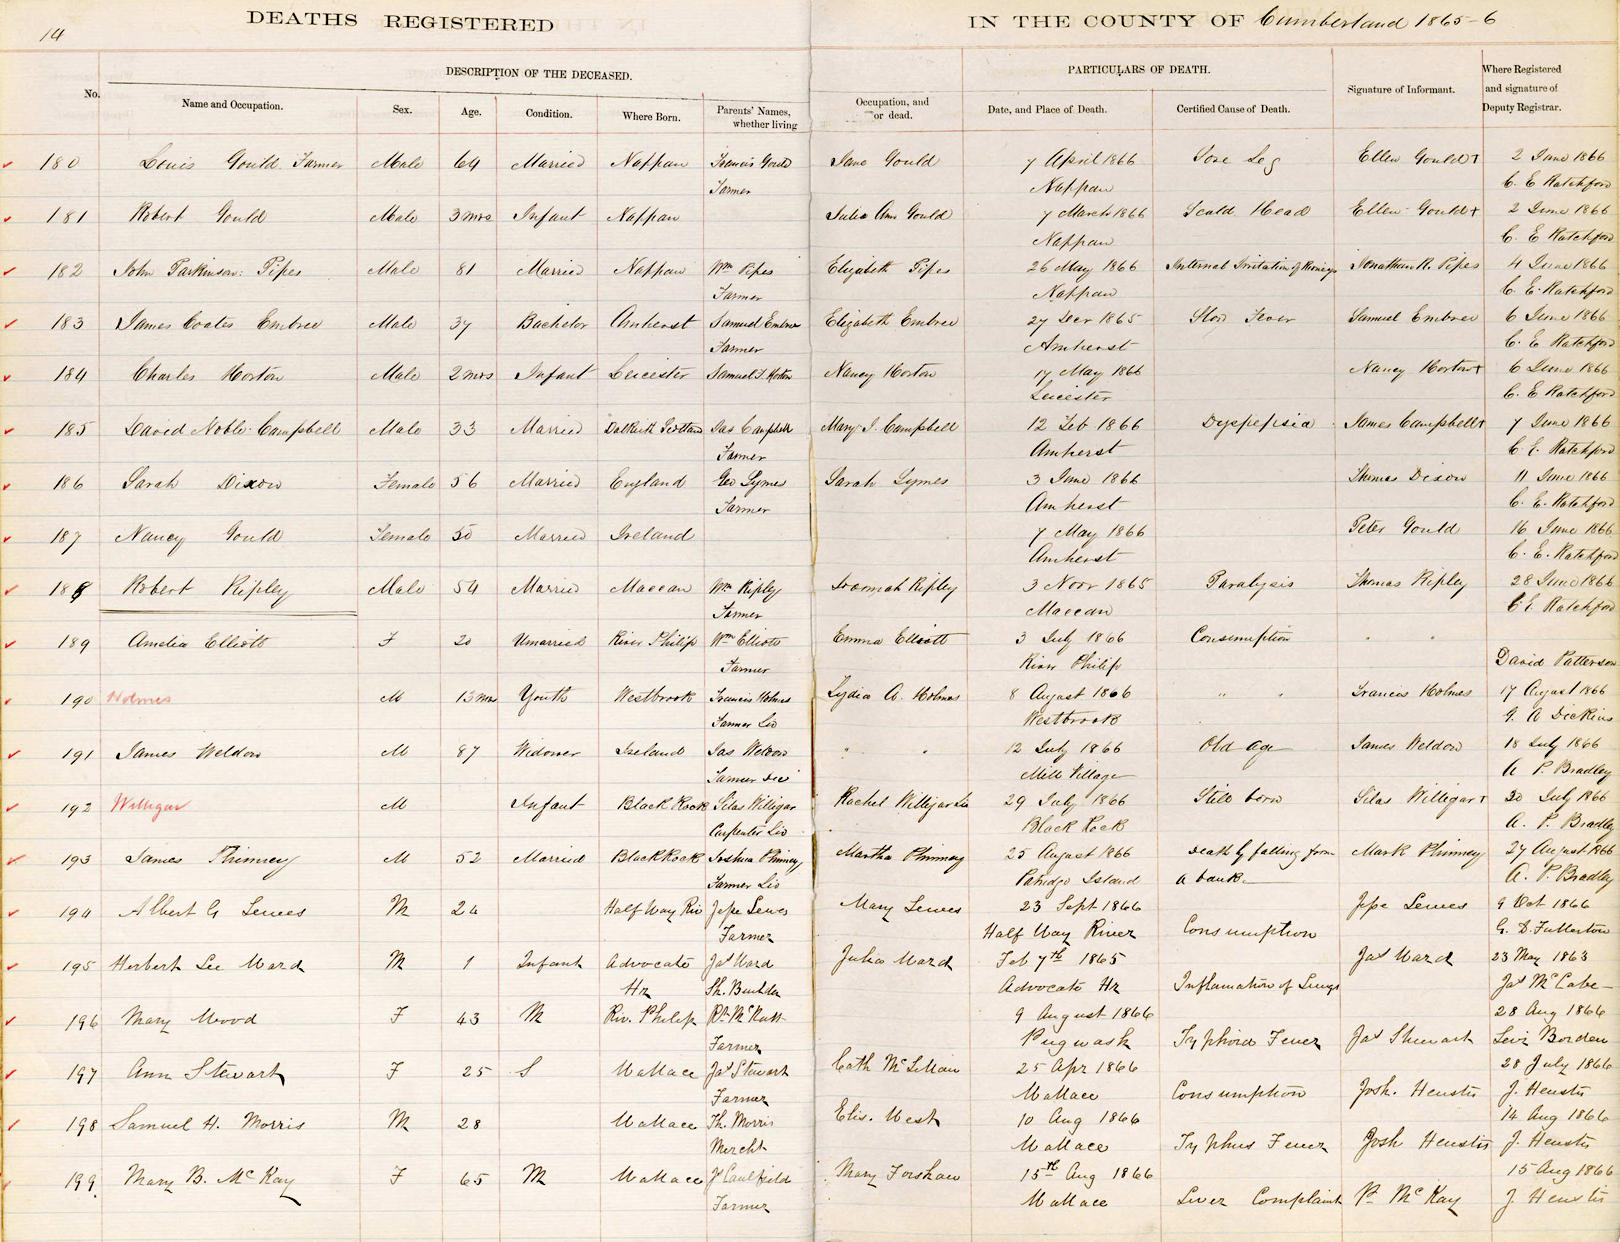 14
DEATHS REGISTERED IN THE COUNTY OF Cumberland 1865-6
DESCRIPTION OF THE DECEASED. PARTICULARS OF DEATH.
No. Name and Occupation. Sex. Age. Condition. Where Born. Parents' Names, whether living Occupation, and or dead. Date, and Place of Death. Certified Cause of Death. Signature of Informant. Where Registered and signature of Deputy Registrar.
180 Louis Gould Farmer Male 64 Married Nappan Francis Gould Jane Gould 7 April 1866 Sore Leg Ellen Gould + 2 June 1866
Farmer Nappan C. E Ratchford
181 Robert Gould Male 3 mos Infant Nappan Julia Ann Gould 7 March 1866 Scald Head Ellen Gould + 2 June 1866
Nappan C. E Ratchford
182 John Parkinson Pipes Male 81 Married Nappan Wm Pipes Elizabeth Pipes 26 May 1866 Internal Irritation of Kidneys Jonathan R. Pipes 4 June 1866
Farmer Nappan C. E. Ratchford
183 James Coates Embree Male 37 Bachelor Amherst Samuel Embree Elizabeth Embree 27 Decr 1865 Slow Fever Samuel Embree 6 June 1866
Farmer Amherst C. E Ratchford
184 Charles Horton Male 2 mos Infant Leicester Samuel F Horton Nancy Horton 17 May 1866 Nancy Horton + 6 June 1866
Leicester C. E Ratchford
185 David Noble Campbell Male 33 Married Dalkeith Scotland Jas Campbell Mary J. Campbell 12 Feb 1866 Dyspepsia James Campbell + 7 June 1866
Farmer Amherst C E. Ratchford
186 Sarah Dixon Female 56 Married England Geo Symes Sarah Symes 3 June 1866 Thomas Dixon 11 June 1866
Farmer Amherst C. E. Ratchford
187 Nancy Gould Female 50 Married Ireland 7 May 1866 Peter Gould 16 June 1866
Amherst C. E. Ratchford
188 Robert Ripley Male 54 Married Maccan Wm Ripley Ripley 3 Novr 1865 Paralysis Thomas Ripley 28 June 1866
Farmer Maccan C E Ratchford
189 Amelia Elliott F 20 Unmarried River Philip Wm Elliott Emma Elliott 3 July 1866 Consumption " "
Farmer River Philip David Patterson
190 Holmes M 13 mos Youth Westbrook Francis Holmes Lydia A. Holmes 8 August 1866 " " Francis Holmes 17 August 1866
Farmer Liv Westbrook G. A Dickins
191 James Weldon M 87 Widower Ireland Jas Weldon " " 12 July 1866 Old age James Weldon 18 July 1866
Farmer Dec Mill Village A P. Bradley
192 Willigar M Infant Black Rock Silas Willigar Rachel Willigar Liv 29 July 1866 Still born Silas Willigar + 30 July 1866
Carpenter Liv Black Rock A. P. Bradley
193 James Phinney M 52 Married Black Rock Joshua Phinney Martha Phinney 25 August 1866 Death by falling from Mark Phinney 27 August 1866
Farmer Liv Patridge Island a bank A. P. Bradley
194 Albert G Lewes M 24 Half Way Riv Jesse Lewes Mary Lewes 23 Sept 1866 Jesse Lewes 9 Oct 1866
Farmer Half Way River Consumption G. D. Fullerton
195 Herbert Lee Ward M 1 Infant Advocate Jas Ward Julia Ward Feb 7th 1865 Jas Ward 23 May 1863
Hr Sh. Builder Advocate Hr Inflamation of Lungs Jas McCabe
196 Mary Wood F 43 M Riv. Philip Rt McNutt 9 August 1866 28 Aug 1866
Farmer Pugwash Typhoid Fever Jas Stewart Levi Borden
197 Ann Stewart F 25 S Wallace Jas Stewart Cath McLellan 25 Apr 1866 28 July 1866
Farmer Wallace Consumption Josh. Heustis J. Heustis
198 Samuel H. Morris M 28 Wallace Th. Morris Elis. West 10 Aug 1866 14 Aug 1866
Mercht Wallace Typhus Fever Josh Heustis J. Heustis
199. Mary B. McKay F 65 M Wallace Js Caulfield Mary Forshaw 15th Aug 1866 15 Aug 1866
Farmer Wallace Liver Complaint McKay J Heustis